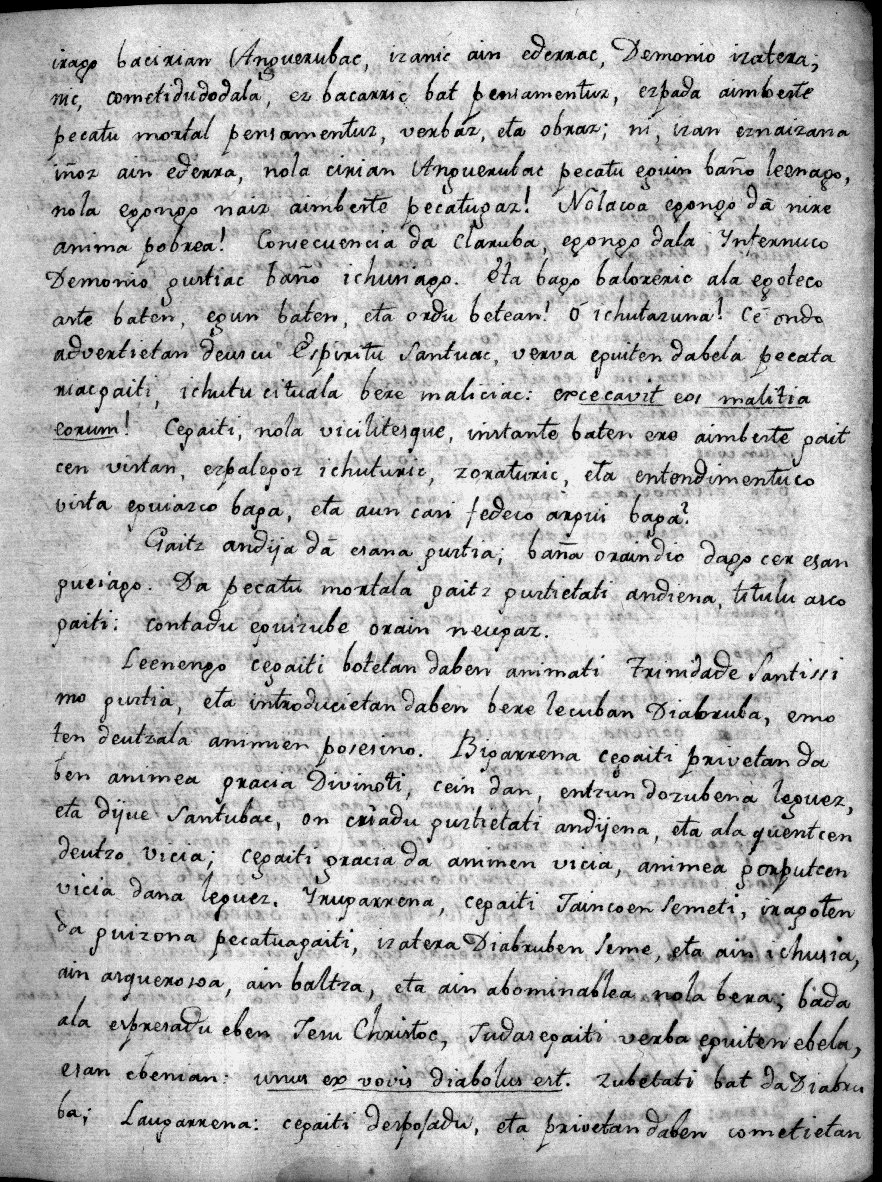 irago bacirian Anguerubac, izanic ain ederrac, Demonio izatera;
nic, cometidudodala, ez bacarric bat pensamentuz, ezpada aimberte
pecatu mortal pensamentuz, verbaz, eta obraz; ni, izan eznaizana
iñoz ain ederra, nola cirian Anguerubac pecatu eguin baño leenago,
nola egongo naiz aimberte pecatugaz! Nolacoa egongo dā nire
anima pobrea! Consecuencia da claruba, egongo dala Ynfernuco
Demonio guztiac baño ichusiago. Eta bago baloreric ala egoteco
arte baten, egun baten, eta ordu betean! O ichutazuna! Ce ondo
advertietan deuscu Espiritu Santuac, verva eguiten dabela pecata
riacgaiti, ichutu cituala bere maliciac: excecavit eos malitia
eorum! Cegaiti, nola vicilitesque, instante baten ere aimberte gait
cen vistan, ezpalegoz ichuturic, zoraturic, eta entendimentuco
vista eguiazco baga, eta aun can fedeco argui baga?
Gaitz andija dā esana guztia; bañā oraindio dago cer esan
guesiago. Da pecatu mortala gaitz guztietati andiena, titulu asco
gaiti: contadu eguizube orain neugaz.
Leenengo cegaiti botetan daben animati Trinidade Santissi
mo guztia, eta introducietan daben bere lecuban Diabruba, emo
ten deutzala animien posesino. Bigarrena cegaiti privetan da
ben animea gracia Divinoti, cein dan, entzun dozubena leguez,
eta dijue Santubac, on criadu guztietati andijena, eta ala quentcen
deutzo vicia; cegaiti gracia da animen vicia, animea gorputcen
vicia dana leguez. Yrugarrena, cegaiti Jaincoen Semeti, iragoten
da guizona pecatuagaiti, izatera Diabruben Seme, eta ain ichusia,
ain asquerosoa, ain baltza, eta ain abominablea nola bera; bada
ala espresadu eben Jesu Christoc, Judasegaiti verba eguiten ebela,
esan ebenian: unus ex vovis diabolus est. Zubetati bat da Diabru
ba; Laugarrena: cegaiti despojadu, eta privetan daben cometietan